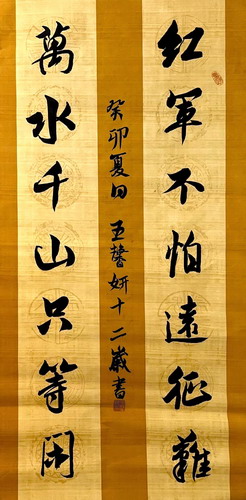 红军不怕遠征難
萬水千山只等闲
癸卯夏日 王馨妍十二歲書